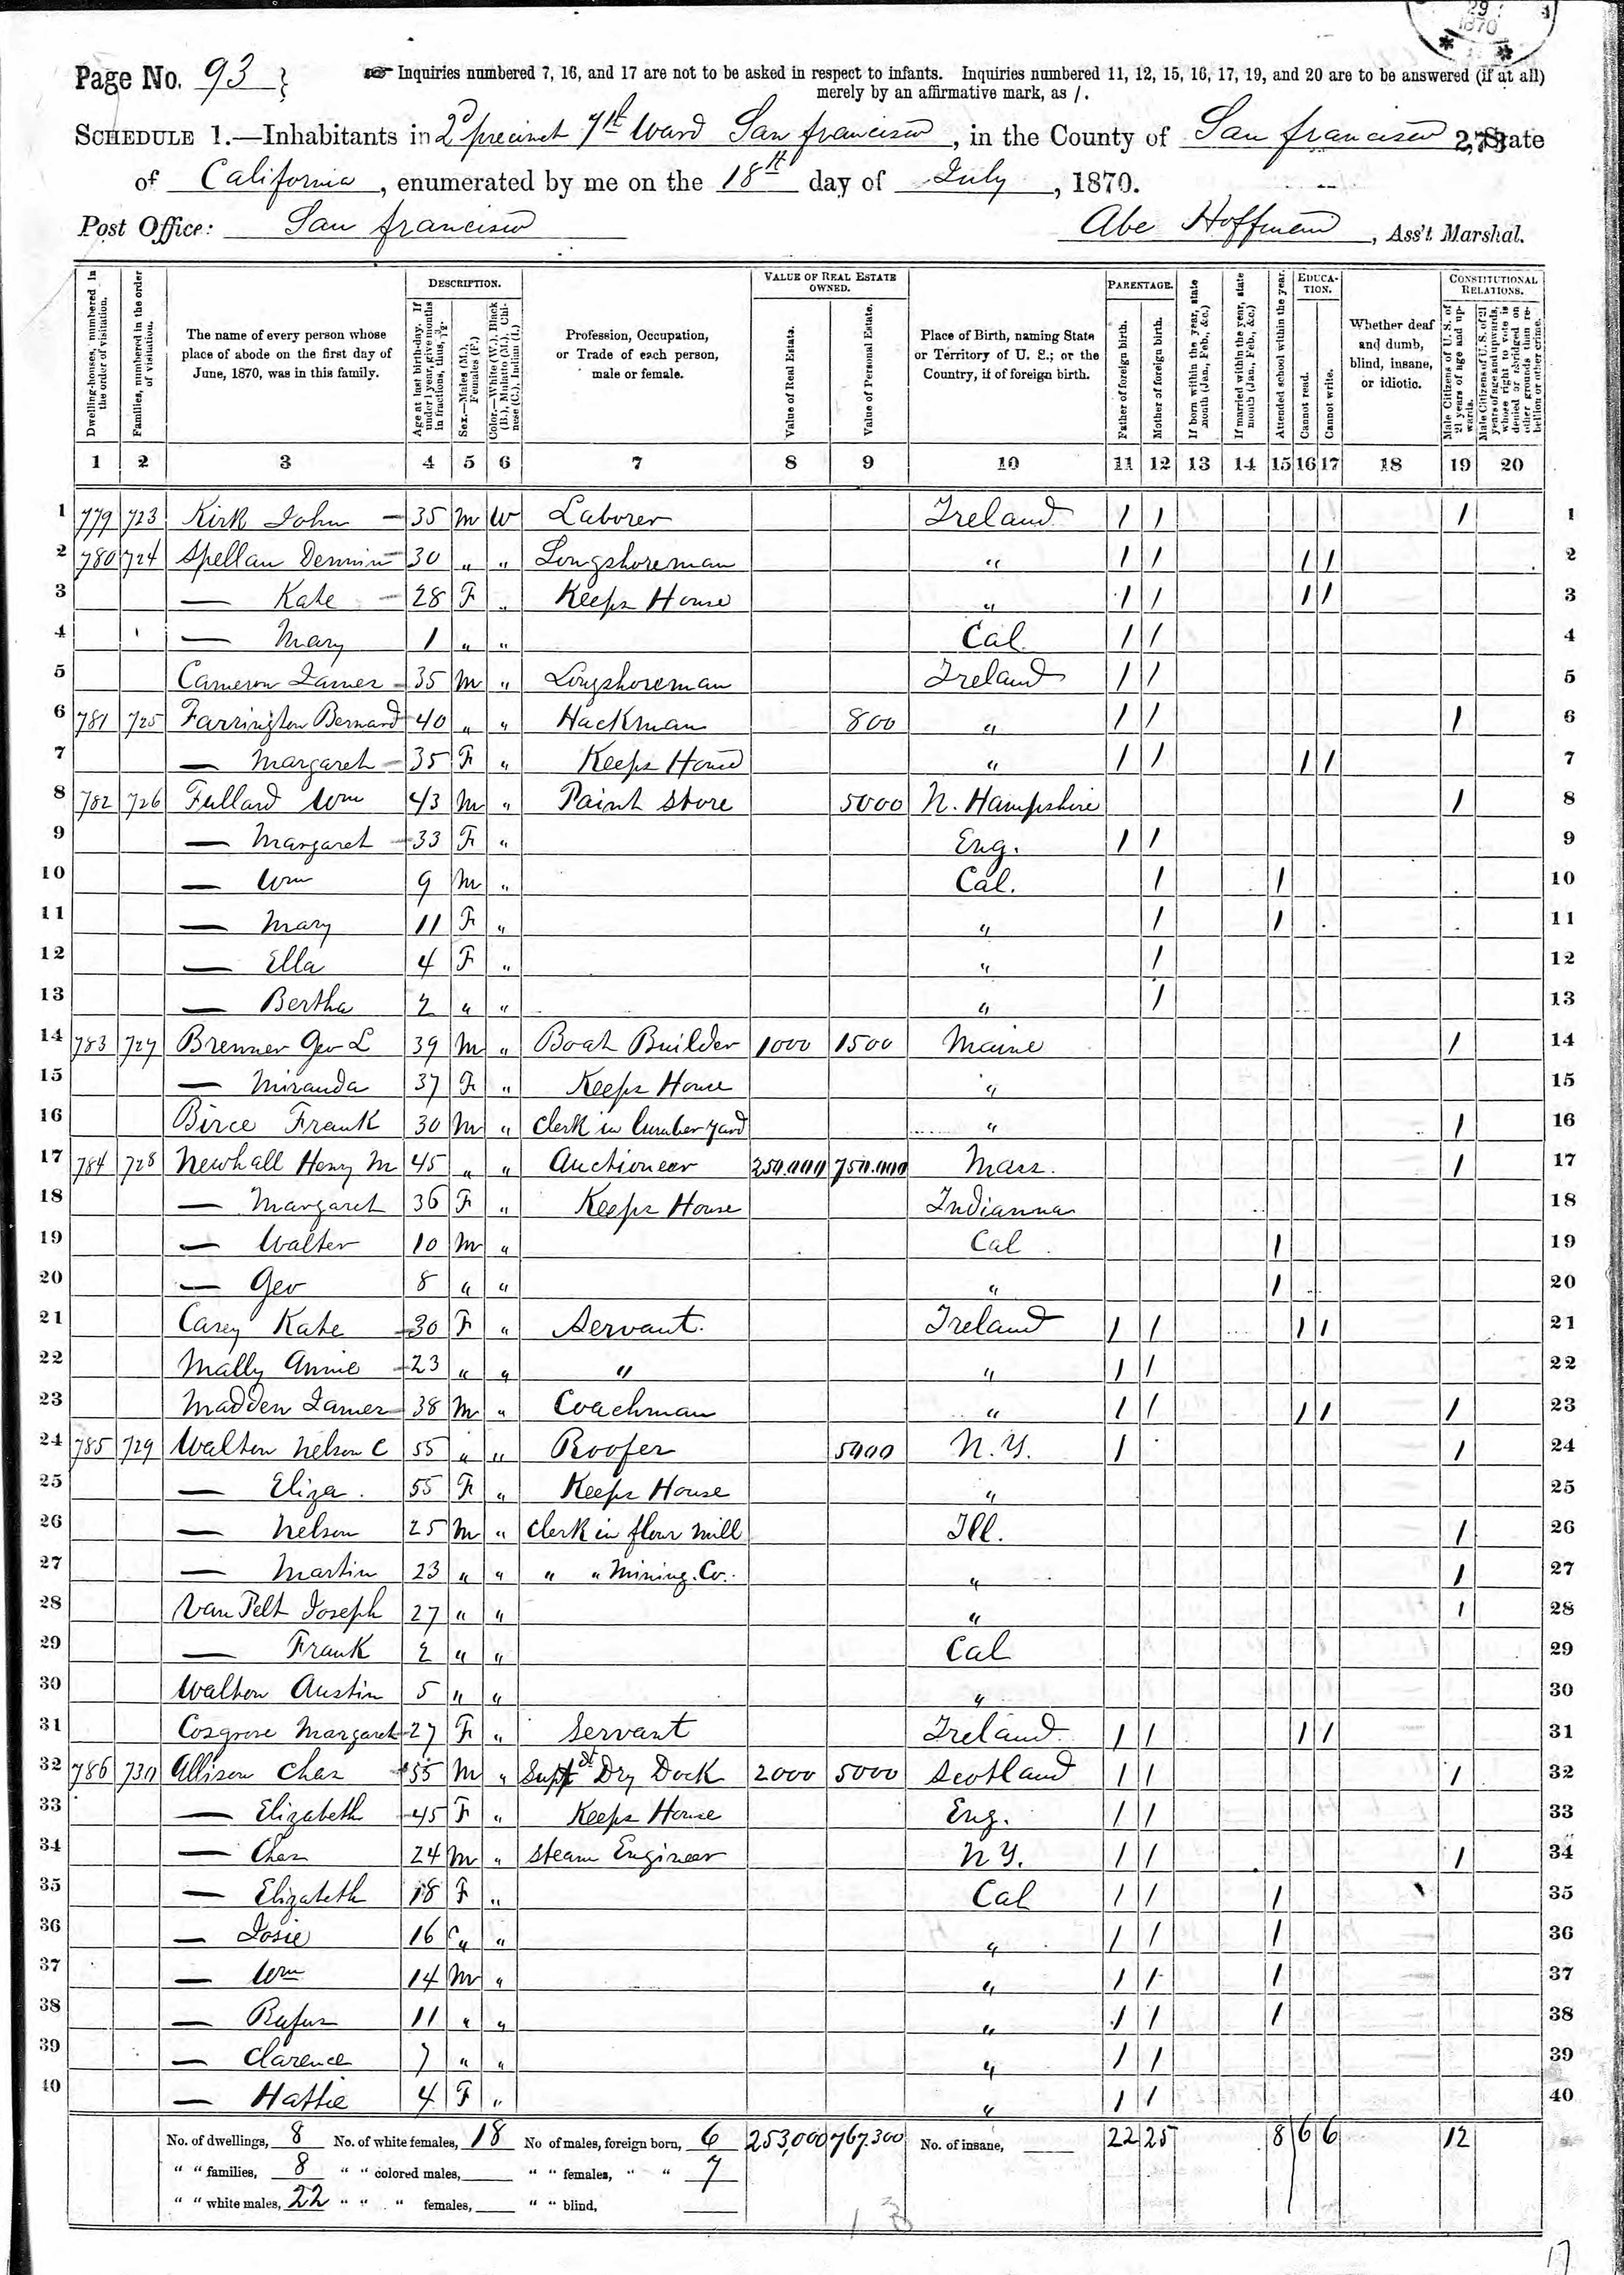 29
1870
Page No. 93
Inquiries numbered 7, 16, and 17 are not to be asked in respect to infants. Inquiries numbered 11, 12, 15, 16, 17, 19, and 20 are to be answered (if at all)
merely by an affirmative mark, as /.
SCHEDULE 1.—Inhabitants in 2d precinct 7th Ward San francisco, in the County of San francisco, State
of California, enumerated by me on the 18th day of July, 1870.
Post Office: San francisco Abe Hoffman, Ass't Marshal.
Dwelling-houses, numbered in the order of visitation.
Families, numbered in the order of visitation.
The name of every person whose place of abode on the first day of June, 1870, was in this family.
DESCRIPTION.
Age at last birth-day. If under 1 year, give months in fractions, thus, 3/12.
Sex.—Males (M.), Females (F.)
Color.—White (W.), Black (B.), Mulatto (M.), Chinese (C.), Indian (I.)
Profession, Occupation, or Trade of each person, male or female.
VALUE OF REAL ESTATE OWNED.
Value of Real Estate.
Value of Personal Estate.
Place of Birth, naming State or Territory of U. S.; or the Country, if of foreign birth.
PARENTAGE.
Father of foreign birth.
Mother of foreign birth.
If born within the year, state month (Jan., Feb., &c.)
If married within the year, state month (Jan., Feb., &c.)
Attended school within the year.
EDUCATION.
Cannot read.
Cannot write.
Whether deaf and dumb, blind, insane, or idiotic.
CONSTITUTIONAL RELATIONS.
Male Citizens of U. S. of 21 years of age and upwards.
Male Citizens of U. S. of 21 years of age and upwards, whose right to vote is denied or abridged on other grounds than rebellion or other crime.
1 2 3 4 5 6 7 8 9 10 11 12 13 14 15 16 17 18 19 20
1 779 723 Kirk John 35 M W Laborer Ireland / / / 1
2 780 724 Spellan Dennis 30 " " Longshoreman " / / / / 2
3 — Kate 28 F " Keeps House " / / / / 3
4 — Mary 1 " " Cal / / 4
5 Cameron James 35 M " Longshoreman Ireland / / 5
6 781 725 Farrington Bernard 40 " " Hackman 800 " / / / 6
7 — Margaret 35 F " Keeps House " / / / / 7
8 782 726 Fullard Wm 43 M " Paint Store 5000 N. Hampshire / 8
9 — Margaret 33 F " Eng. / / 9
10 — Wm 9 M " Cal. / / 10
11 — Mary 11 F " " / / 11
12 — Ella 4 F " " / 12
13 — Bertha 2 " " " / 13
14 783 727 Brenner Geo L 39 M " Boat Builder 1000 1500 Maine / 14
15 — Miranda 37 F " Keeps House " 15
16 Birce Frank 30 M " Clerk in lumber yard " / 16
17 784 728 Newhall Henry M 45 " " Auctioneer 250.000 750.000 Mass. / 17
18 — Margaret 36 F " Keeps House Indianna 18
19 — Walter 10 M " Cal / 19
20 — Geo 8 " " " / 20
21 Carey Kate 30 F " Servant Ireland / / / / 21
22 Mally Annie 23 " " " " / / 22
23 Madden James 38 M " Coachman " / / / / / 23
24 785 729 Walton Nelson C 55 " " Roofer 5000 N.Y. / / 24
25 — Eliza 55 F " Keeps House " 25
26 — Nelson 25 M " Clerk in flour mill Ill. / 26
27 — Martin 23 " " " " Mining Co. " / 27
28 Van Pelt Joseph 27 " " " / 28
29 — Frank 2 " " Cal 29
30 Walton Austin 5 " " " 30
31 Cosgrove Margaret 27 F " Servant Ireland / / / / 31
32 786 730 Allison Chas 55 M " Supt Dry Dock 2000 5000 Scotland / / / 32
33 — Elizabeth 45 F " Keeps House Eng. / / 33
34 — Chas 24 M " Steam Engineer N Y. / / / 34
35 — Elizabeth 18 F " Cal / / / 35
36 — Josie 16 " " " / / / 36
37 — Wm 14 M " " / / / 37
38 — Rufus 11 " " " / / / 38
39 — Clarence 7 " " " / / 39
40 — Hattie 4 F " " / / 40
No. of dwellings, 8 No. of white females, 18 No of males, foreign born, 6 253,000 767.300 No. of insane, 22 25 8 6 6 12
" " families, 8 " " colored males, " " females, " " 7
" " white males, 22 " " " females, " " blind,
13
17